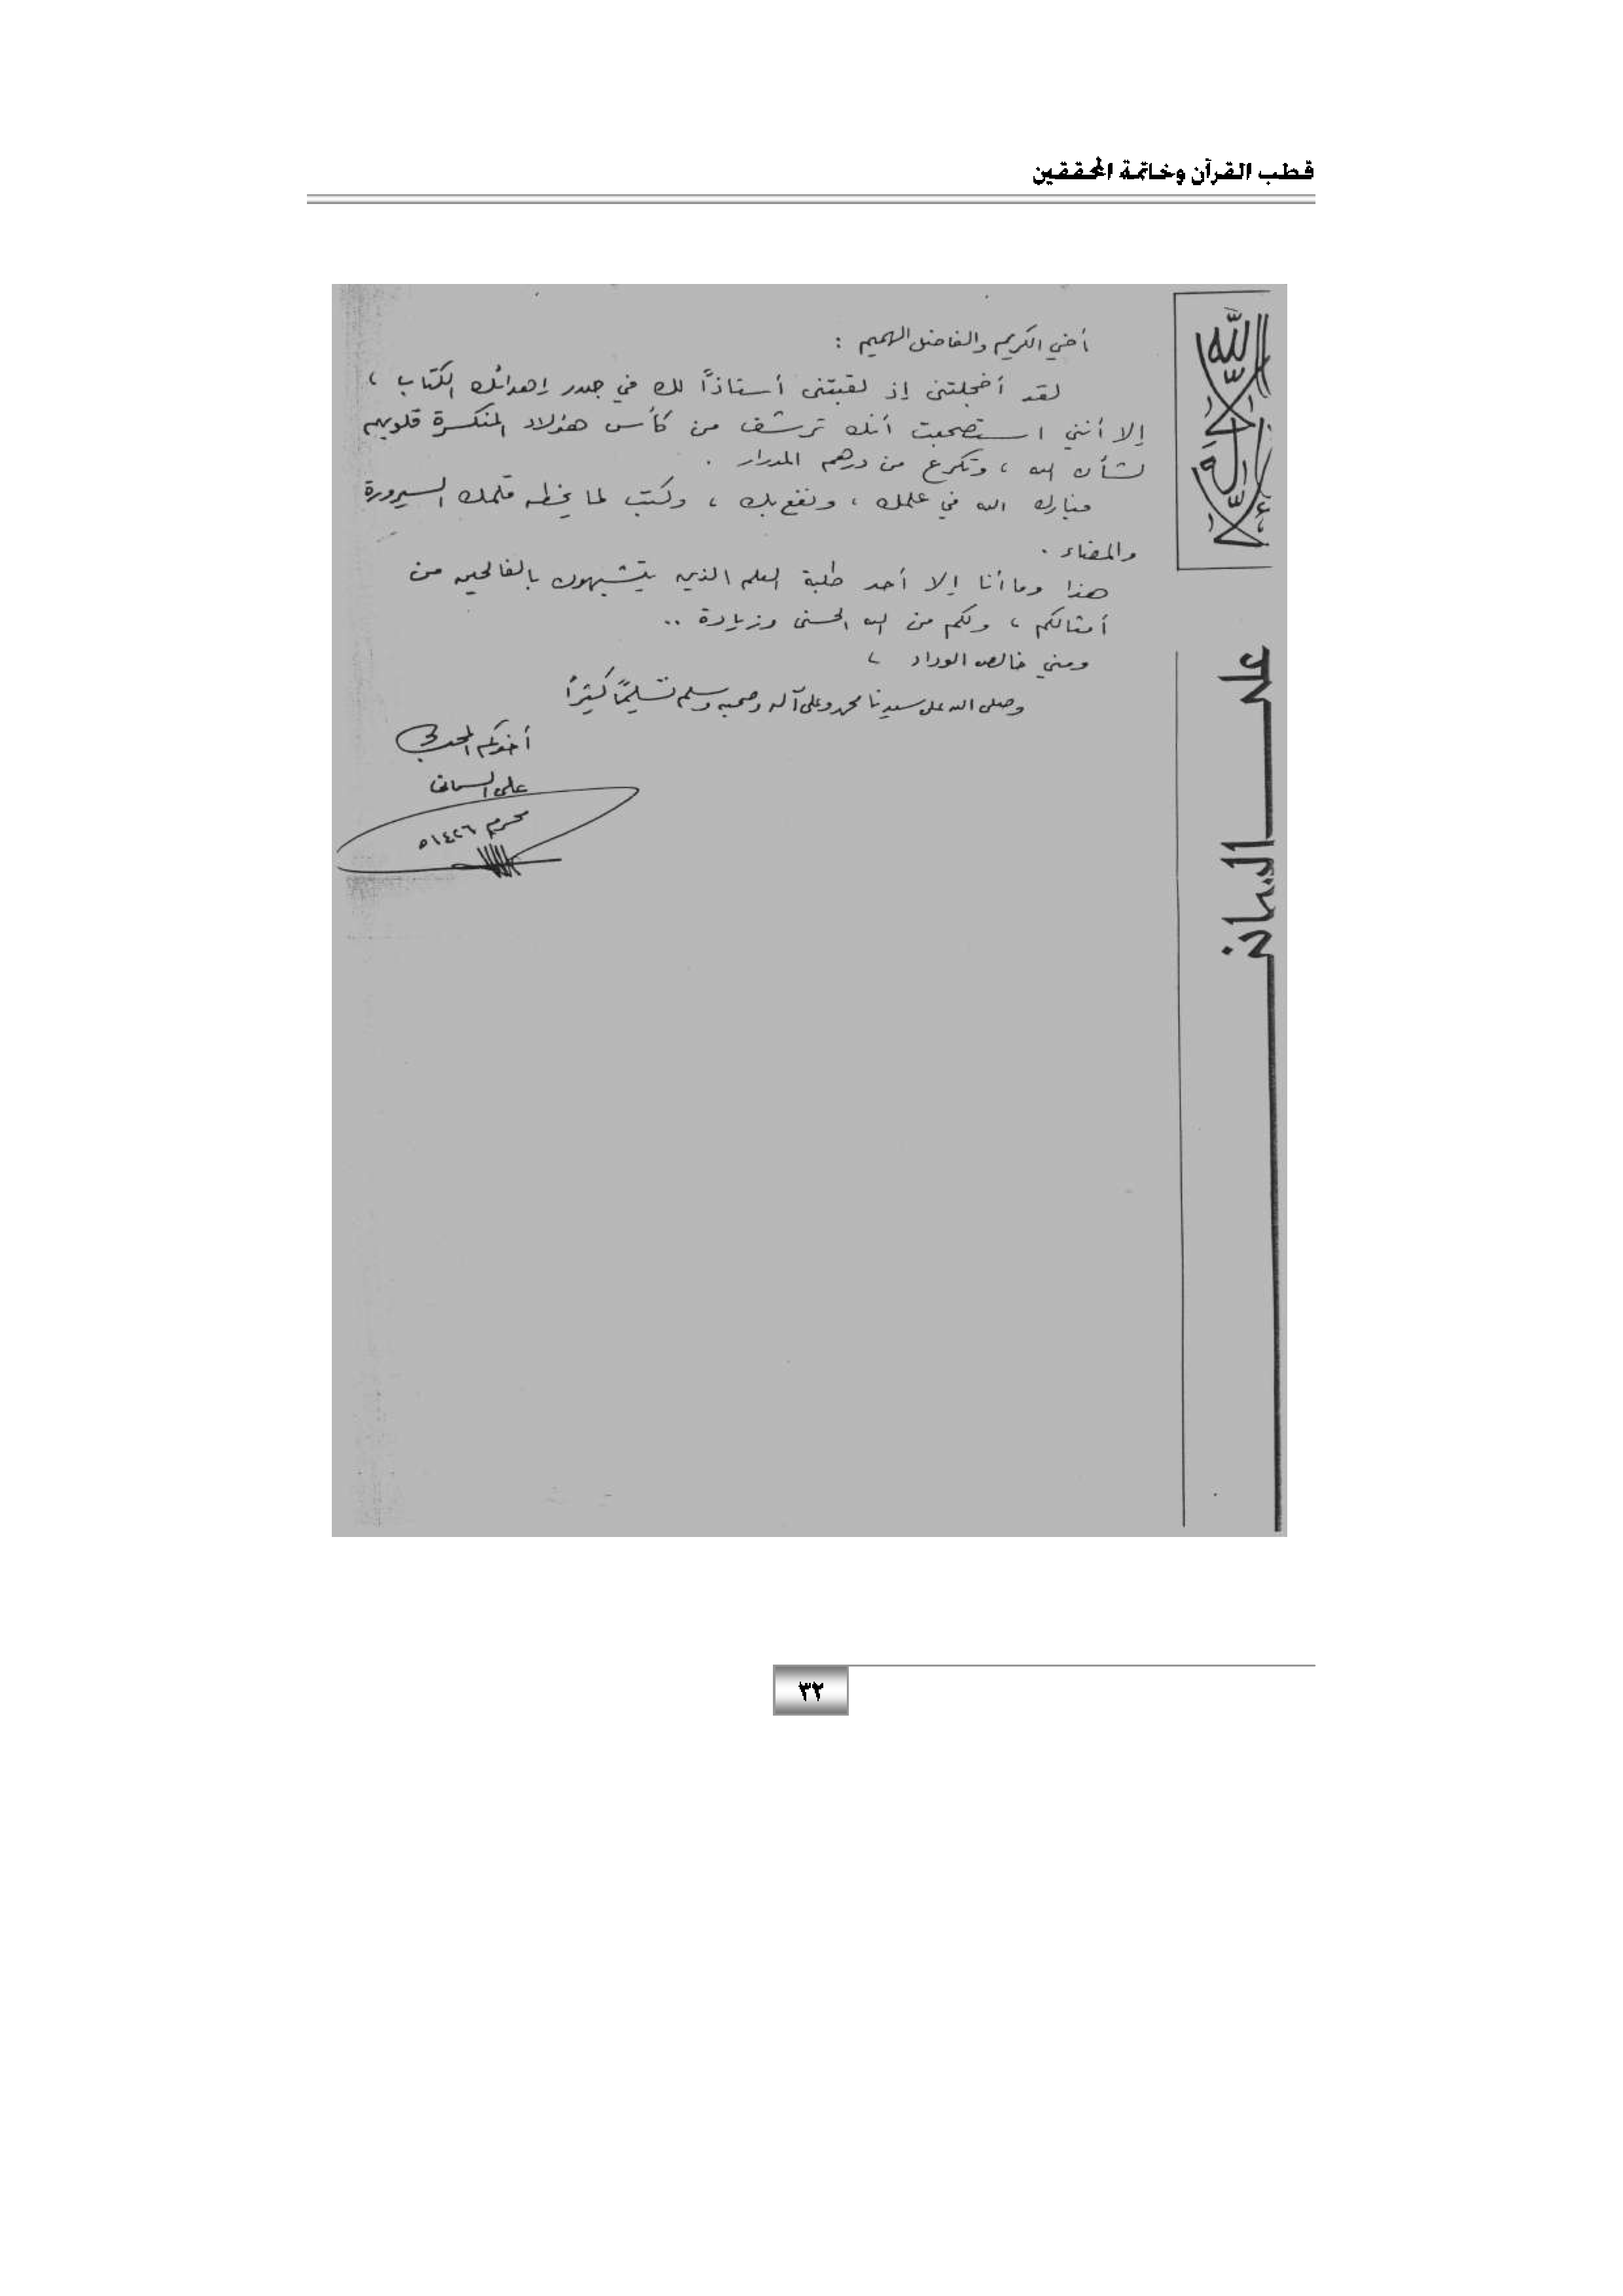 قطب القرآن وخاتمة المحققين
أخي الكريم والفاضل الهميم :
لقد أخجلتني إذ لقبتني أستاذاً لك في صدر إهدائك الكتاب ،
إلا أنني استصحبت أنك ترشف من كأس هؤلاء المنكسرة قلوبهم
لشأن الله ، وتكرع من درهم المدرار .
فبارك الله في علمك ، ونفع بك ، وكتب لما يخطه قلمك السيرورة
والمضاء .
هذا وما أنا إلا أحد طلبة العلم الذين يتشبهون بالفالحين من
أمثالكم ، ولكم من الله الحسنى وزيادة ..
ومني خالص الوداد ،
وصلى الله على سيدنا محمد وعلى آله وصحبه وسلم تسليمًا كثيرًا
أخوكم المحب
علي السماني
محرم ١٤٢٦ه
علي السماني
٣٢